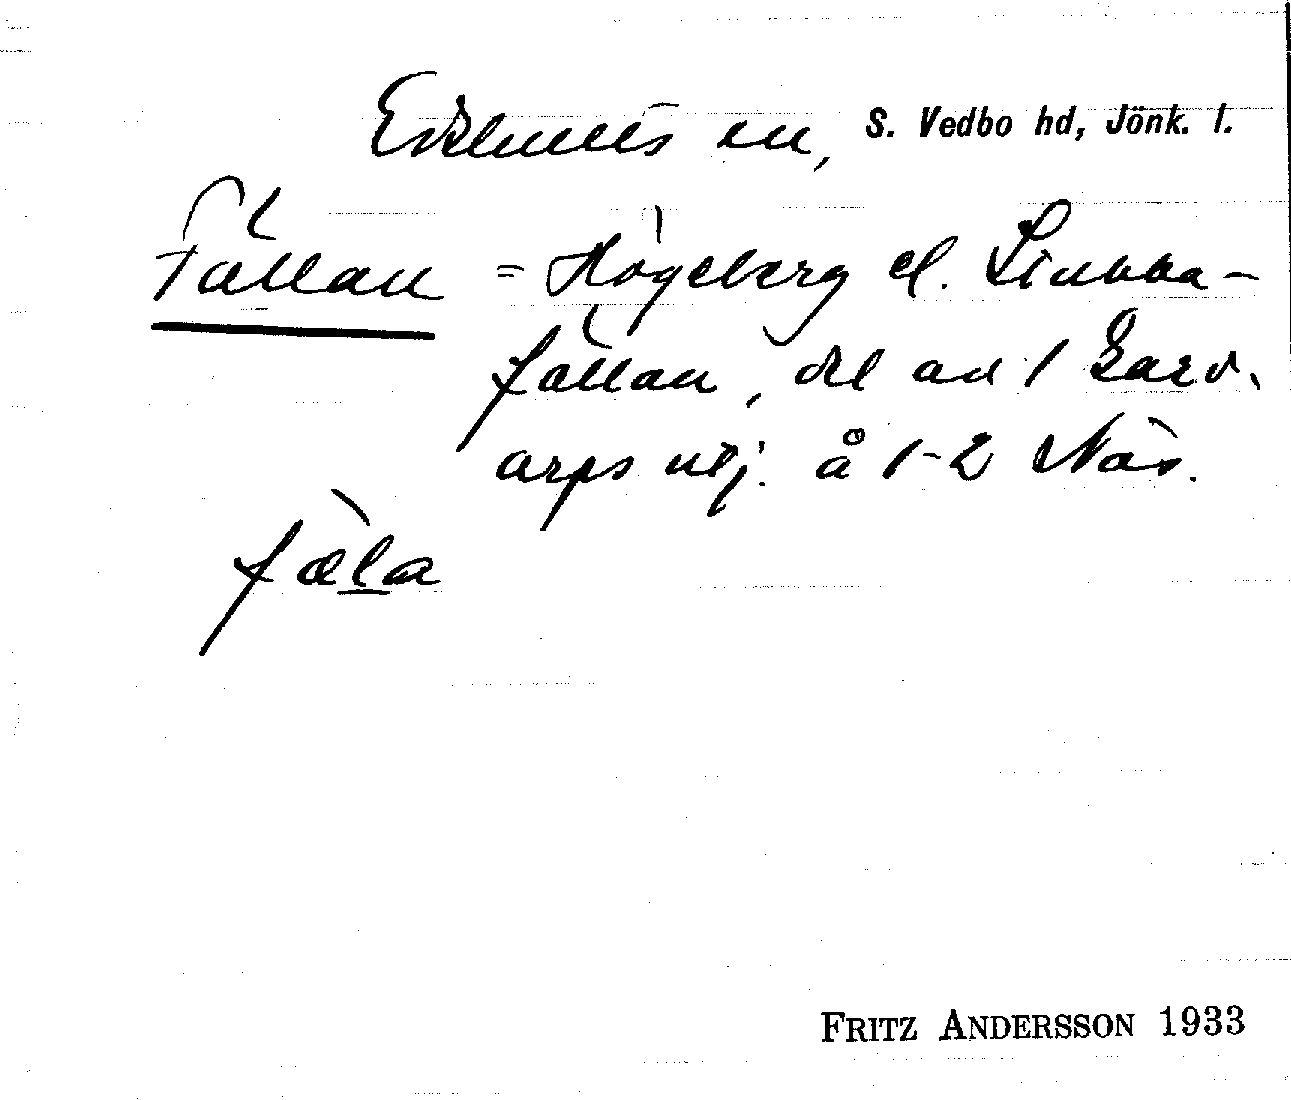 Edshults sn, S. Vedbo hd, Jönk. l.
Fällan = Högeberg el. Linnba-
fällan, del av 1 Gard.
arps utj. å 1-2 Näs.
fæla
FRITZ ANDERSSON 1933